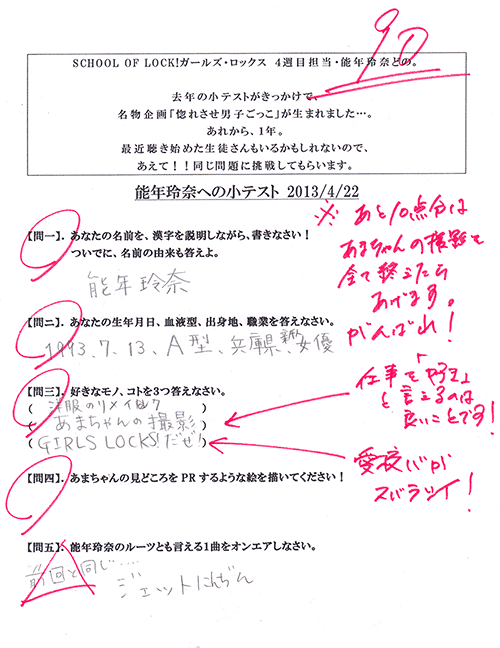 90
SCHOOL OF LOCK!ガールズ・ロックス 4週目担当・能年玲奈との。
去年の小テストがきっかけで、
名物企画「惚れさせ男子ごっこ」が生まれました…。
あれから、1年。
最近聴き始めた生徒さんもいるかもしれないので、
あえて！！同じ問題に挑戦してもらいます。
能年玲奈への小テスト 2013/4/22
【問一】. あなたの名前を、漢字を説明しながら、書きなさい！
ついでに、名前の由来も答えよ。
能年玲奈
※ あと10点分は
あまちゃんの撮影を
全て終えたら
あげます。
がんばれ！
【問二】. あなたの生年月日、血液型、出身地、職業を答えなさい。
1993.7.13、A型、兵庫県、女優
【問三】. 好きなモノ、コトを3つ答えなさい。
( 洋服のリメイク )
( あまちゃんの撮影 )
( GIRLS LOCKS!だぜ! )
仕事を「好き」
と言えるのは
良いことです！
愛校心が
スバラシイ！
【問四】. あまちゃんの見どころを PR するような絵を描いてください！
【問五】. 能年玲奈のルーツとも言える1曲をオンエアしなさい。
前回と同じ……
ジェットにんぢん